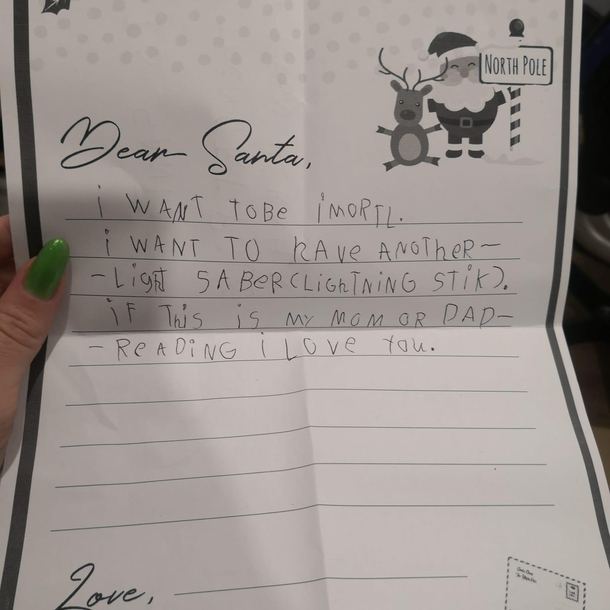 NORTH POLE
Dear Santa,
i WANT TOBe iMORTL.
i WANT TO hAve ANOTheR-
-Light SABeR(LighTNiNG STiK).
iF This is MY MOM OR DAD-
-ReADiNG i LOVe You.
Love,